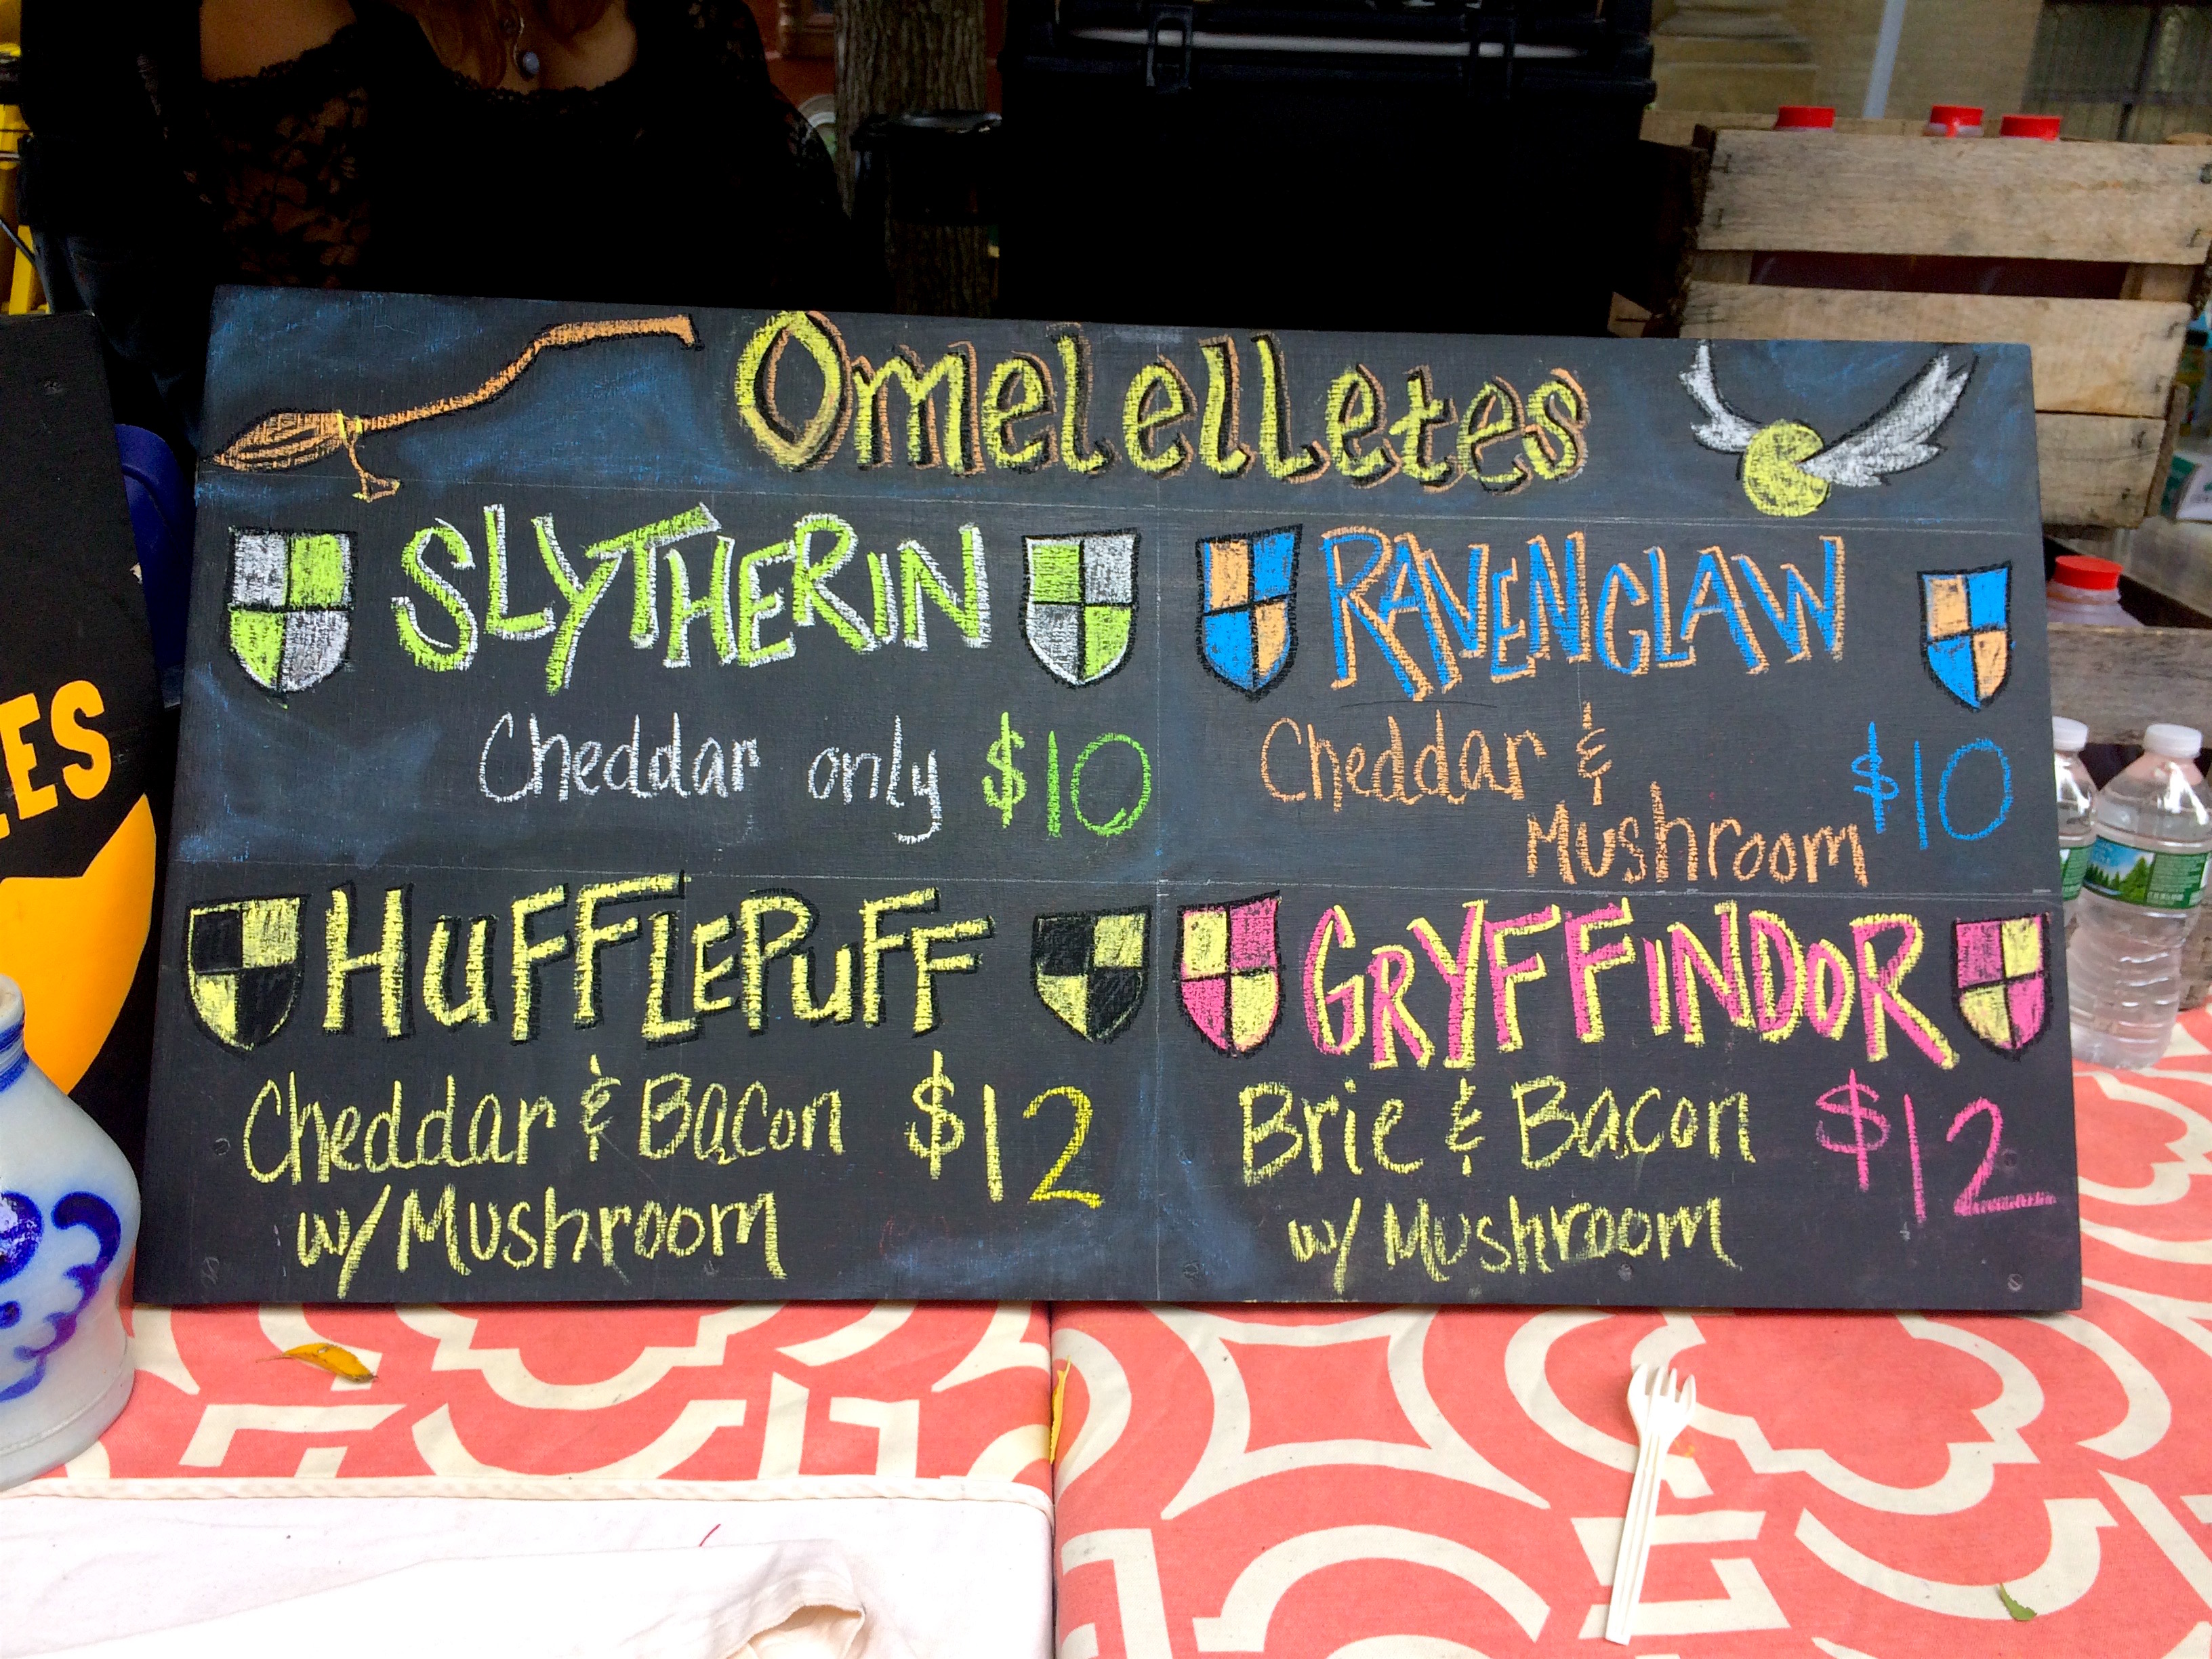 Omelelletes
SLYTHERIN
Cheddar only $10
RAVENCLAW
Cheddar &
Mushroom $10
HUFFLEPUFF
Cheddar & Bacon $12
w/ Mushroom
GRYFFINDOR
Brie & Bacon $12
w/ Mushroom
ES